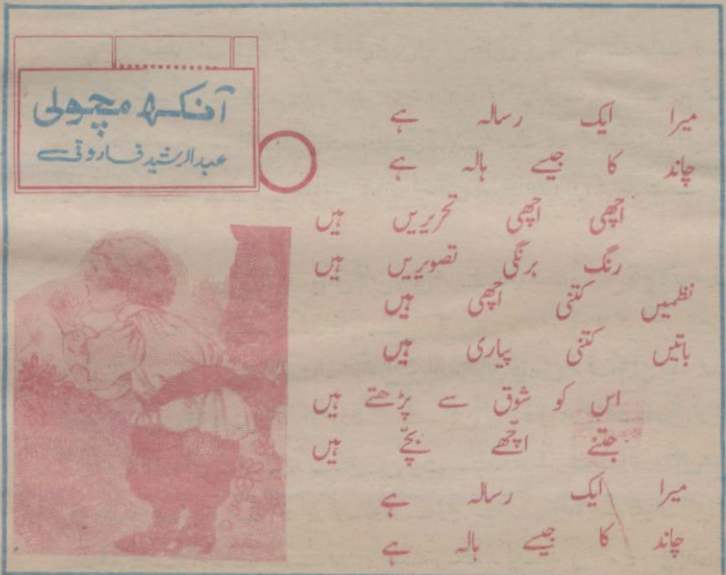 آنکھ مچولی
عبدالرشید فاروقی
میرا ایک رسالہ ہے
چاند کا جیسے ہالہ ہے
اچھی اچھی تحریریں ہیں
رنگ برنگی تصویریں ہیں
نظمیں کتنی اچھی ہیں
باتیں کتنی پیاری ہیں
اس کو شوق سے پڑھتے ہیں
جتنے اچھے بچے ہیں
میرا ایک رسالہ ہے
چاند کا جیسے ہالہ ہے